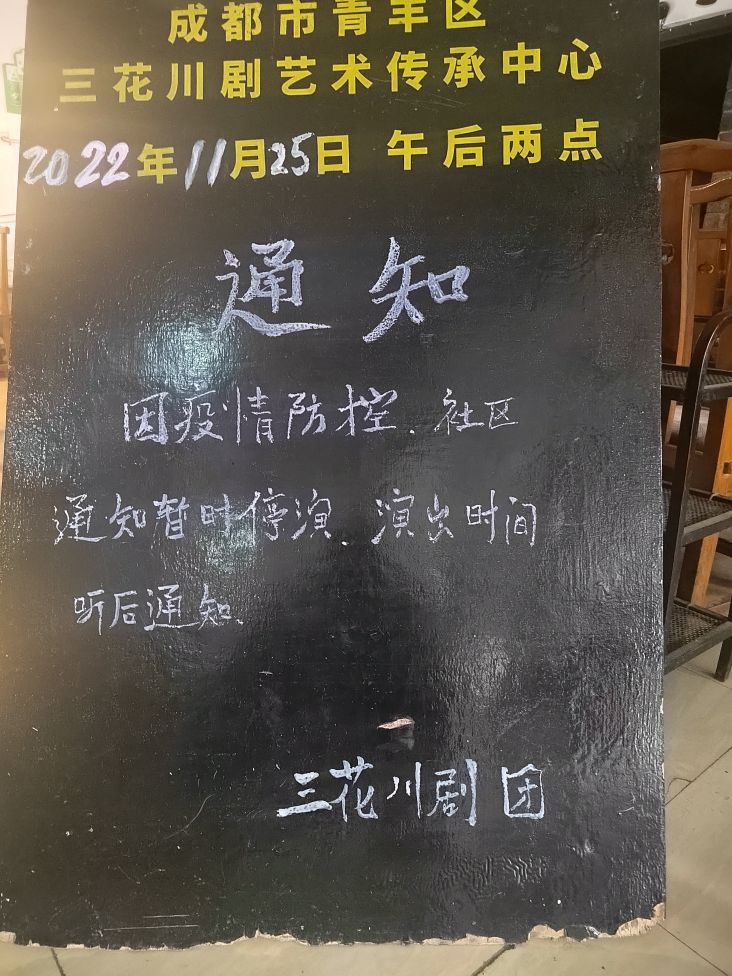 成都市青羊区
三花川剧艺术传承中心
2022年11月25日 午后两点
通知
因疫情防控、社区
通知暂时停演、演出时间
听后通知
三花川剧团